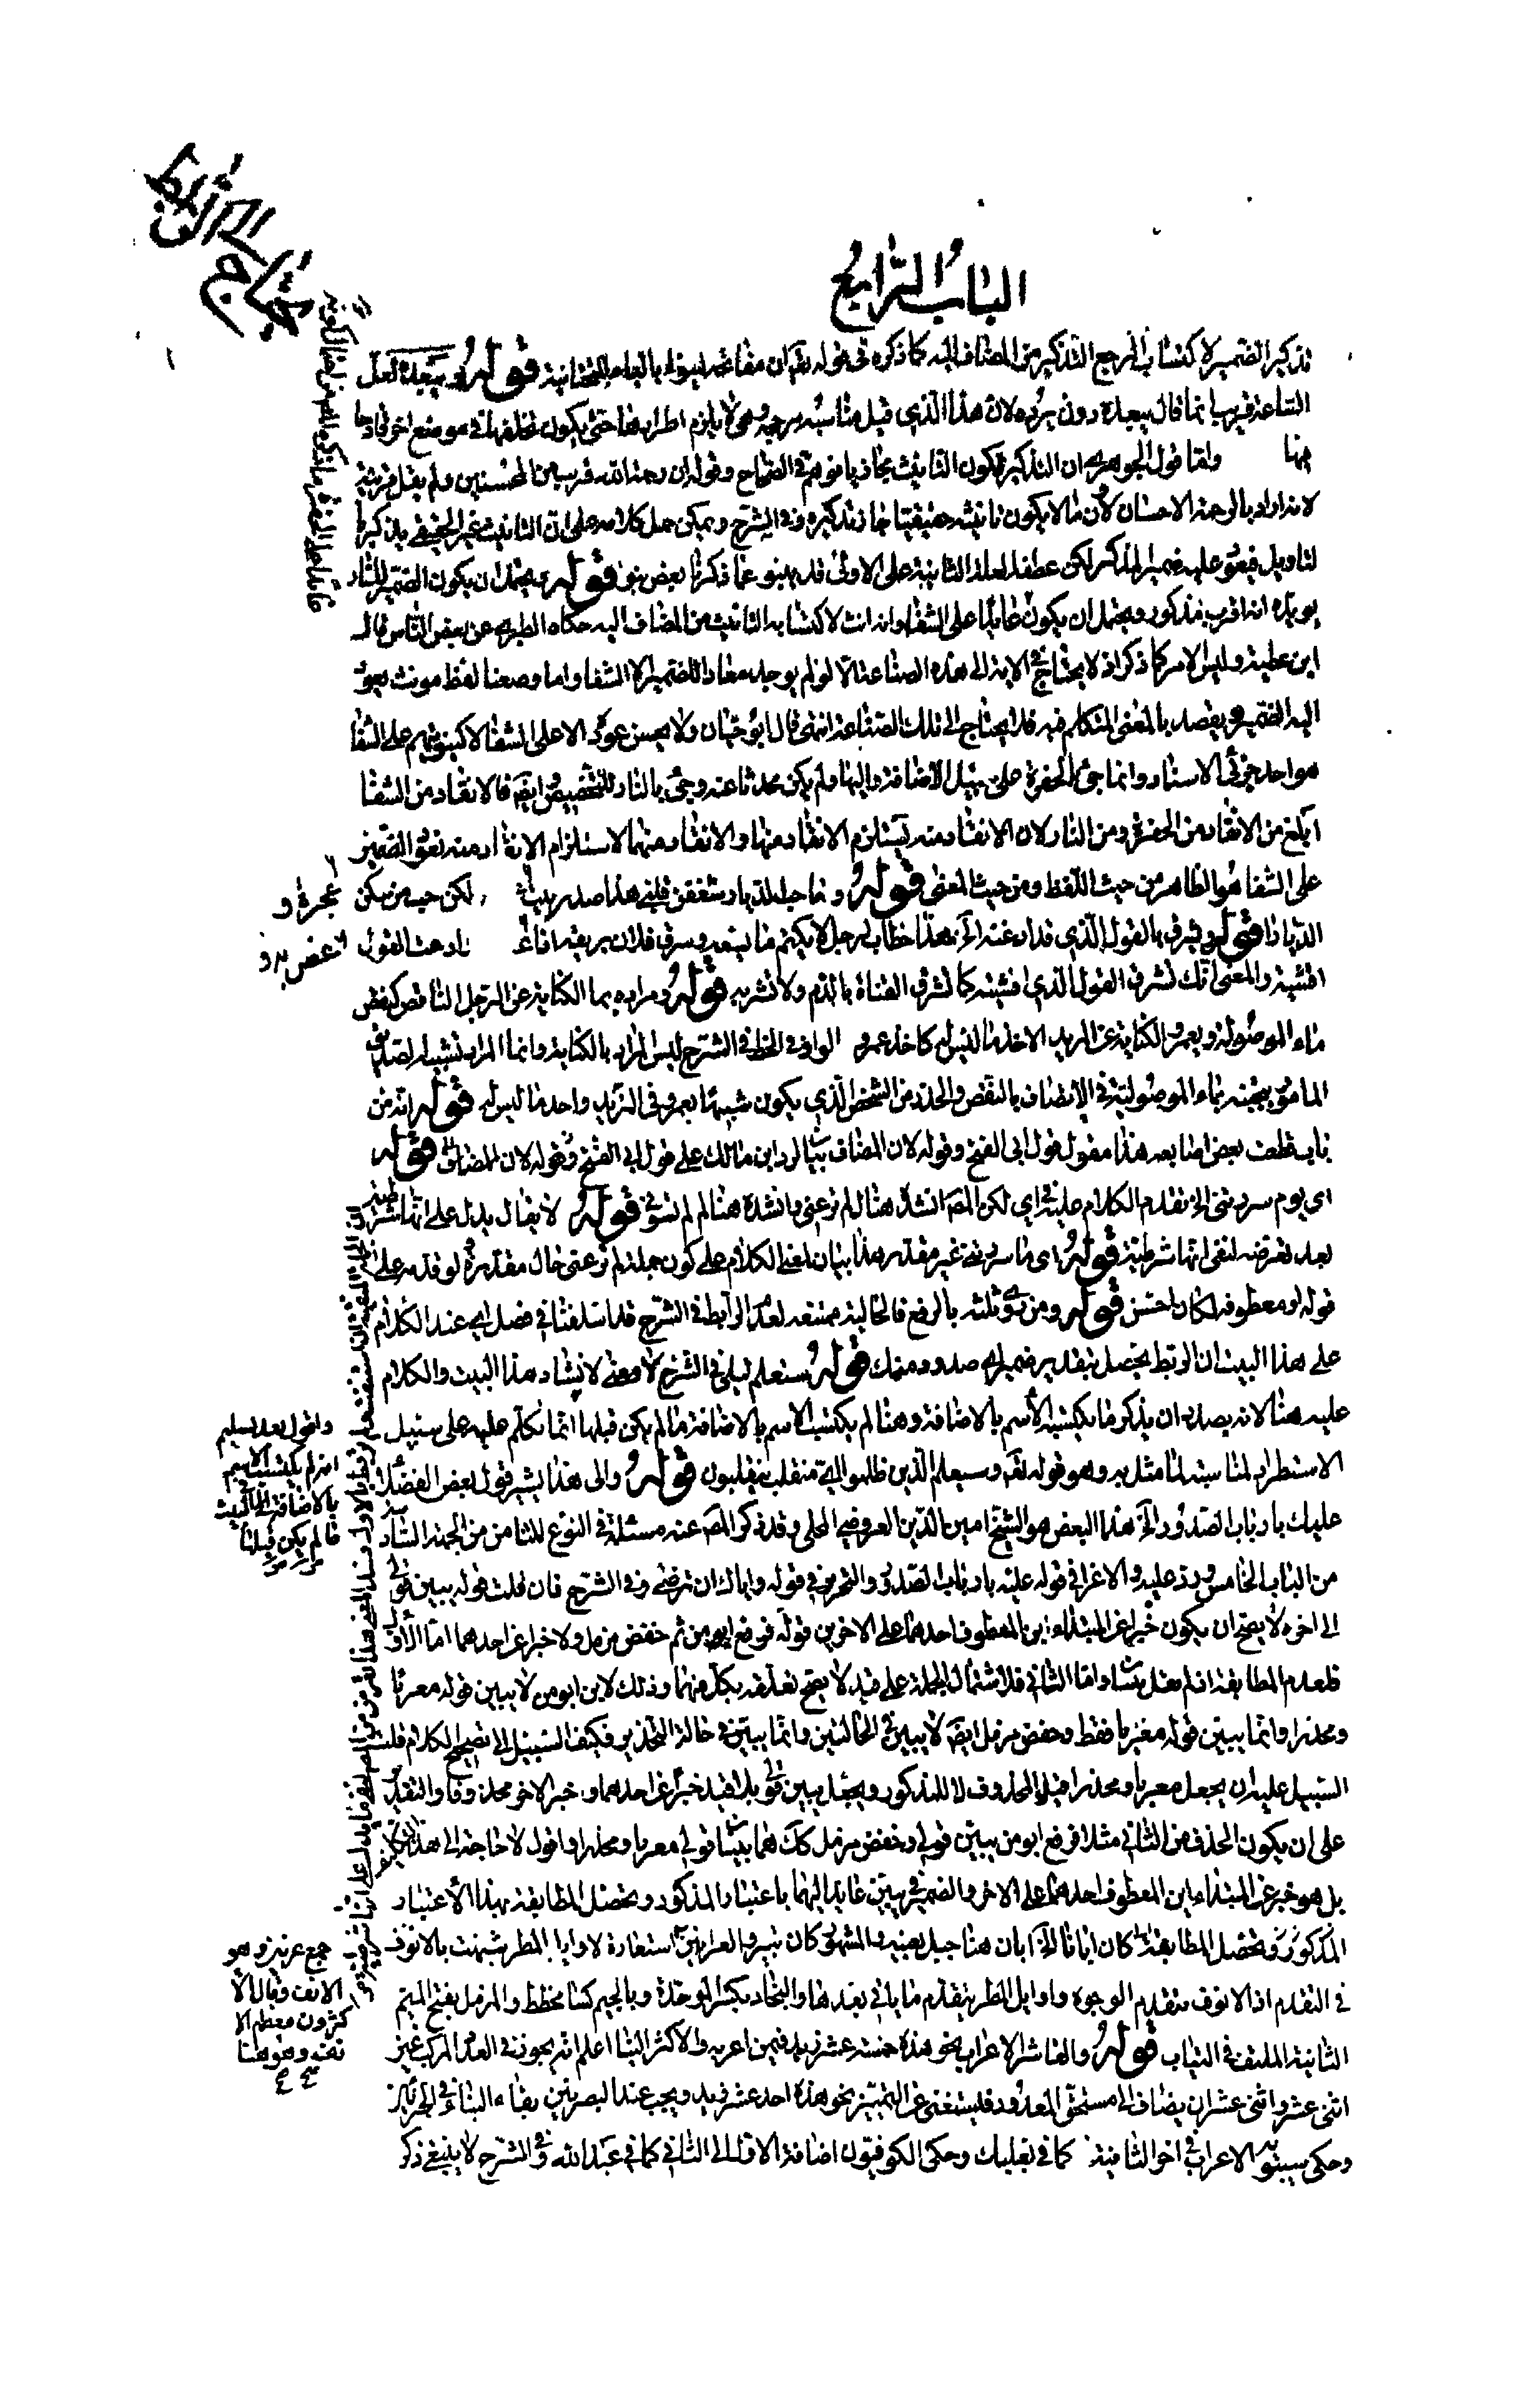 الباب الرابع
تذكير الضمير لاكتساب المرجع التذكير من المضاف اليه كما ذكره في قوله تع ان مفاتحه لينوء بالياء التحتانية قوله ويبعده لعل
الساعة قريب انما قال يبعده دون يرده لان هذا الذي قيل مناسبة مرجحة وهي لا يلزم اطرادها حتى يكون تخلفها في موضع اخر قادحا
فيها واما قول الجوهري ان التذكير لكون التانيث مجازيا فوهم في الصحاح وقوله ان رحمة الله قريب من المحسنين ولم يقل قريبة
لانه اراد بالرحمة الاحسان لان ما لا يكون تانيثه حقيقيا جاز تذكيره وفي الشرح ويمكن حمل كلامه على ان التانيث غير الحقيقي يذكر
لتاويل فيعود عليه ضمير المذكر لكن عطف العلة الثانية على الاولى قد ينبو عما ذكرنا بعض نبو قوله ويحتمل ان يكون الضمير للنار
يويده انه اقرب مذكور ويحتمل ان يكون عايدا على الشفا وانه انث لاكتسابه التانيث من المضاف اليه حكاه الطبري عن بعض الناس قال
ابن عطية وليس الامر كما ذكر اذ لا يحتاج في الاية الى هذه الصناعة الا لو لم يوجد معاد للضمير الا الشفا واما ومعنا لفظ مونث يعود
اليه الضمير ويقصد بالمعنى المتكلم فيه فلا يحتاج الى تلك الصناعة انتهى قال ابو حيان ولا يحسن عوده الا على الشفا لان كينونتهم على الشفا
هو احد جزئي الاسناد وانما جيء بالحفرة على سبيل الاضافة اليها ولم يكن محدثا عنه وجيء بالنار للتخصيص ايض فالانقاذ من الشفا
ابلغ من الانقاذ من الحفرة ومن النار لان الانقاذ منه يستلزم الانقاذ منها والانقاذ منهما لا يستلزم الانقاذ منه فعود الضمير
على الشفا هو الظاهر من حيث اللفظ ومن حيث المعنى قوله وما حب الديار شغفن قلبي هذا صدر بيت عجزه ولكن حب من سكن
الديارا قوله وتشرق بالقول الذي قد اذعته الخ هذا خطاب لرجل لا يكتم ما يستعد وشرق فلان بريقه اذا غص به واذعت القول
افشيته والمعنى انك تشرق القول الذي افشيته كما تشرق القناة بالدم ولا تشربه قوله ومراده بما الكناية عن الرجل الناقص كنقص
ماء الموصولة وبعمرو الكناية عن المريد الاخذ ما ليس له كاخذ عمرو الواو في الخط في الشرح ليس المراد بالكناية وانما المراد تشبيه الصديق
المامور بتجنبه بماء الموصولية في الاتصاف بالنقص والحذر من الشخص الذي يكون شبيها بعمرو في التزيد واخذ ما ليس له قوله انه من
باب قطعت بعض اصابعه هذا مقول قول ابي الفتح وقوله لان المضاف بيان لرد ابن مالك على قول ابي الفتح وقوله لان المضاف قوله
اي يوم سررتني الخ تقدم الكلام عليه في اي لكن المص انشد هنا لم ترعني وانشده هنا لم لم تسؤني قوله لا يقال يدل على انها شرطية
بعد تعرضه لنفي انها شرطية قوله اي ما سررتني غير مقدر هذا بيان لمعنى الكلام على كون جملة لم ترعني حال مقدرة لو قدمه على
قوله او معطوفة لكان احسن قوله ومن روى ثلثه بالرفع فالحالية ممتنعة لعدم الرابط في الشرح قد اسلفنا في فصل اي عند الكلام
على هذا البيت ان الربط يحصل بتقدير ضمير اي صدود منك قوله ستعلم ليلى في الشرح لا معنى لانشاد هذا البيت والكلام
عليه هنا لانه بصدد ان يذكر ما يكتسبه الاسم بالاضافة وهنا لم يكتسب الاسم بالاضافة ما لم يكن قبلها انما تكلم عليه على سبيل
الاستطراد لمناسبته لما مثل به وهو قوله تع وسيعلم الذين ظلموا اي منقلب ينقلبون قوله والى هذا يشير قول بعض الفضلا
عليك بارباب الصدور الخ هذا البعض هو الشيخ امين الدين العروضي المحلي وقد ذكر المص عنه مسئلة في النوع الثامن من الجهة السادسة
من الباب الخامس ورد عليه والاغرا في قوله عليك بارباب الصدور والتحذير في قوله واياك ان ترضى وفي الشرح فان قلت قوله يبين قولي
الى اخره لا يصح ان يكون خبرا عن المبتداءين المعطوف احدهما على الاخر من قوله فرفع ابو من ثم خفض مزمل ولا خبرا عن احدهما اما الاول
فلعدم المطابقة اذ لم يقل يبينا واما الثاني فلاشتمال الجملة على قيد لا يصح تعلقه بكل منهما وذلك لان ابو من لا يبين قوله مغريا
ومحذرا وانما يبين قوله مغريا فقط وخفض مزمل ايض لا يبين في الحالتين وانما يبين في حالة التحذير فكيف السبيل الى تصحيح الكلام قلت
السبيل عليه ان يجعل مغريا ومحذرا قيدا لمحذوف لا للمذكور ويجعل يبين قولي بلا قيد خبرا عن احدهما وخبر الاخر محذوفا والتقدير
على ان يكون الحذف من الثاني مثلا فرفع ابو من يبين قولي وخفض مزمل كك هما يبينا قولي مغريا ومحذرا واقول لا حاجة الى هذا التكلف
بل هو خبر عن المبتداءين المعطوف احدهما على الاخر والضمير في يبين عايد اليهما باعتبار المذكور وتحصل المطابقة بهذا الاعتبار
المذكور وتحصل المطابقة كان ابانا الخ ابان هنا جبل بعينه والمشهور كان ثبيرا والعرانين استعارة لاوايل المطر شبهت بالانوف
في التقدم اذ الانوف متقدم الوجوه واوايل المطر يتقدم ما ياتي بعدها والبجاد بكسر الموحدة وبالجيم كساء مخطط والمزمل بفتح الميم
الثانية الملتف في الثياب قوله والعاشر الاعراب نحو هذه خمسة عشر زيد فيمن اعربه والاكثر البنا اعلم انه يجوز في العدد المركب غير
اثني عشر واثنتي عشر ان يضاف الى مستحق المعدود فيستغنى عن التمييز نحو هذه احد عشر زيد ويجب عند البصريين بقاء البناء في الجزئين
وحكى سيبويه الاعراب في اخر الثانية كما في بعلبك وحكى الكوفيون اضافة الاول الى الثاني كما في عبد الله وفي الشرح لا ينبغي ذكر
واقول بعد تسليم
انه لم يكتسب الاسم
بالاضافة في البيت
ما لم يكن قبلها
جمع عرنين وهو
الانف وقال الا
كثرون معظم الا
نف وهو هنا